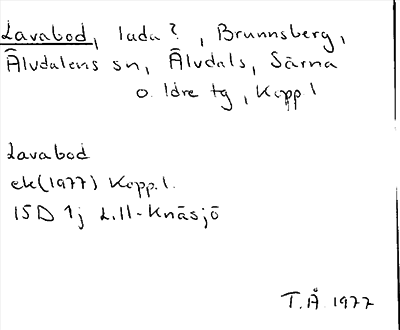 Lavabod, lada?, Brunnsberg,
Älvdalens sn, Älvdals, Särna
o. Idre tg, Kopp. l
Lavabod
ek (1977) Kopp. l.
15D 1j Lill-Knäsjö
T.Å 1977